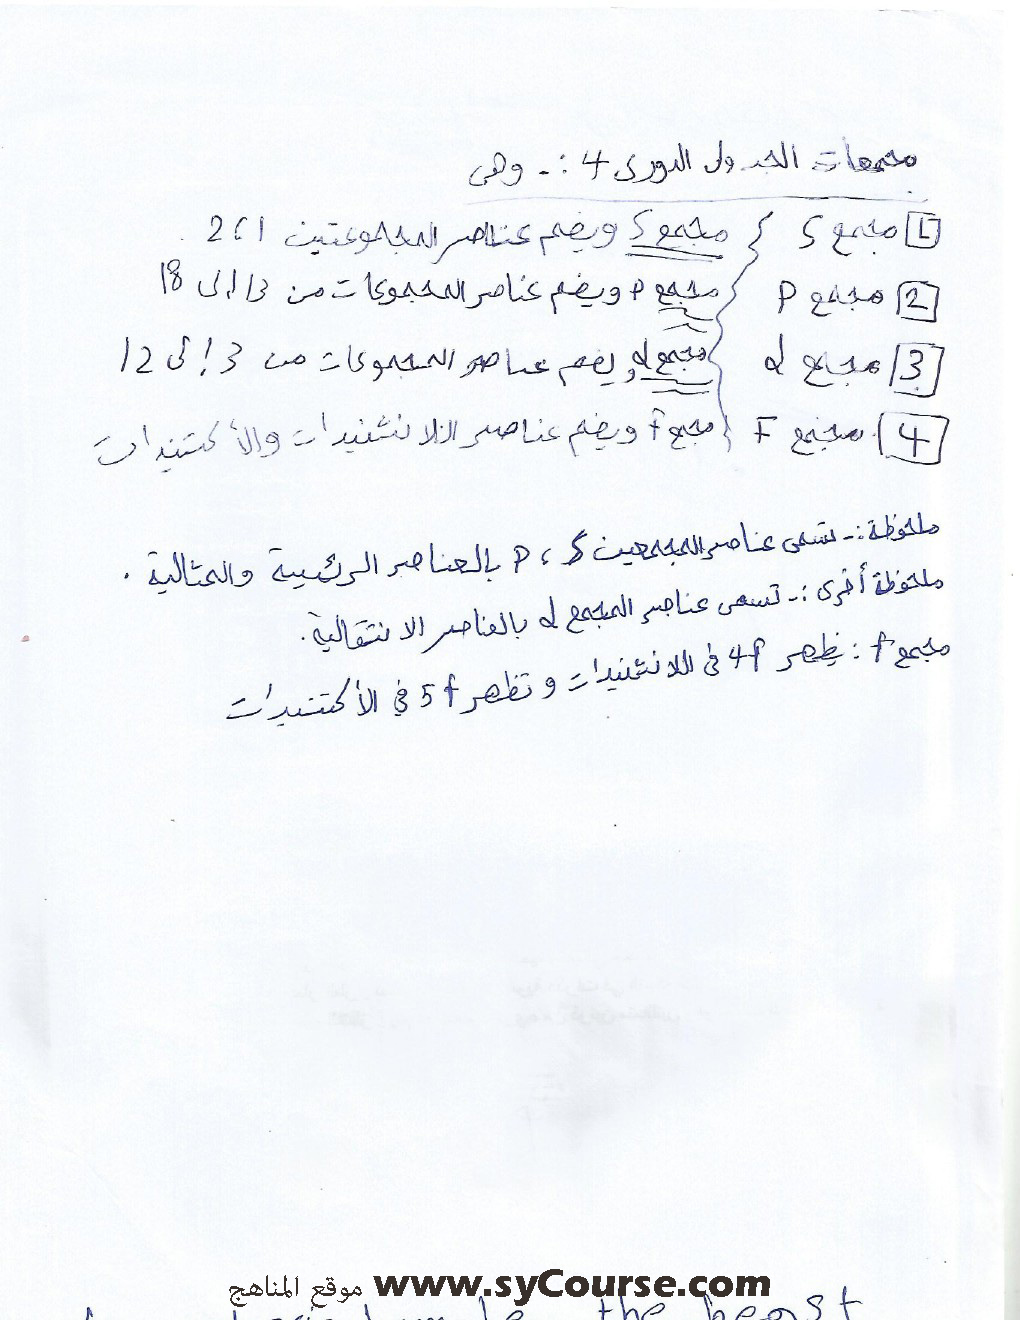 مجمعات الجدول الدوري 4 :- وهي
1 مجمع S { مجمع S ويضم عناصر المجموعتين 1 ، 2 .
2 مجمع P { مجمع P ويضم عناصر المجموعات من 13 إلى 18
3 مجمع d { مجمع d ويضم عناصر المجموعات من 3 إلى 12
4 مجمع F { مجمع f ويضم عناصر اللانثنيدات والأكتنيدات
ملحوظة :- تسمى عناصر المجمعين S ، P بالعناصر الرئسية والمثالية .
ملحوظة أخرى :- تسمى عناصر المجمع d بالعناصر الانتقالية .
مجمع f : يظهر 4f في اللانثنيدات وتظهر 5f في الأكتنيدات
موقع المناهج www.syCourse.com
the beast